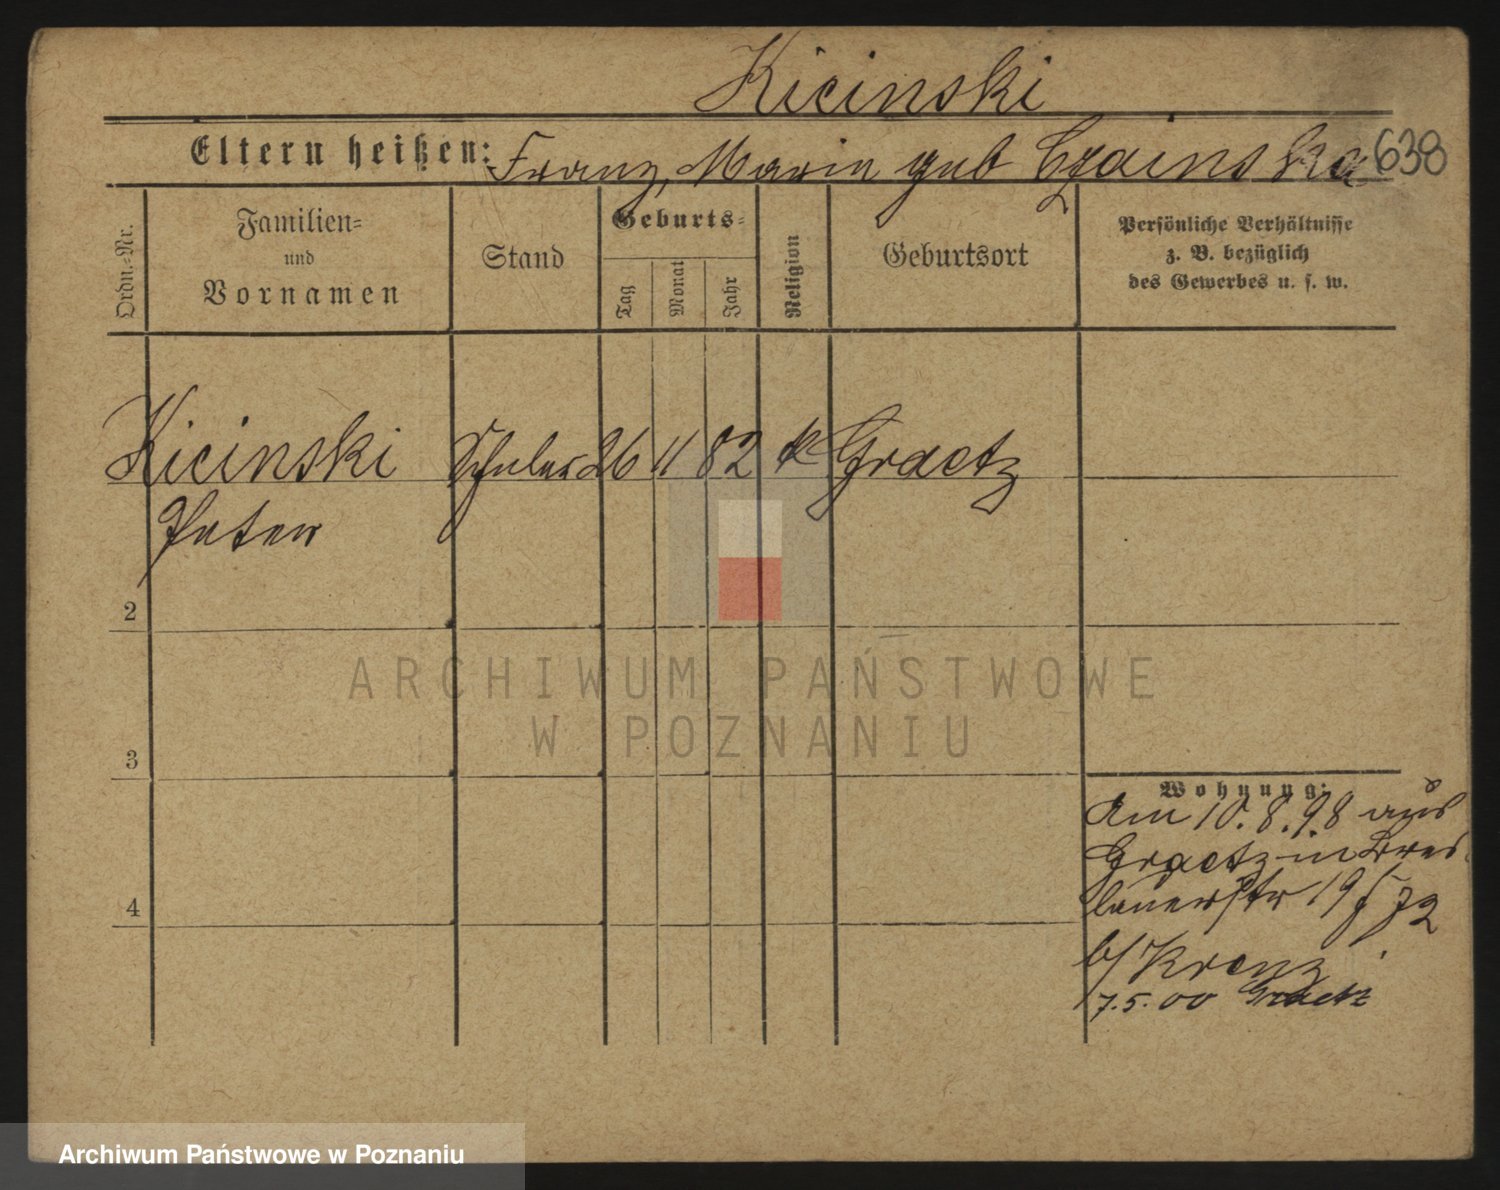 Kicinski
Eltern heißen: Franz, Maria geb Czainska 638
Ordn.-Nr.
Familien- und Vornamen
Stand
Geburts-
Tag
Monat
Jahr
Religion
Geburtsort
Persönliche Verhältnisse
z. B. bezüglich
des Gewerbes u. s. w.
Kicinski Schüler 26 11 82 k Graetz
Peter
2
3
4
Wohnung:
Am 10.8.98 aus
Graetz in Bres
lauerstr 19
b/ Kranz
7.5.00 Graetz
ARCHIWUM PAŃSTWOWE
W POZNANIU
Archiwum Państwowe w Poznaniu